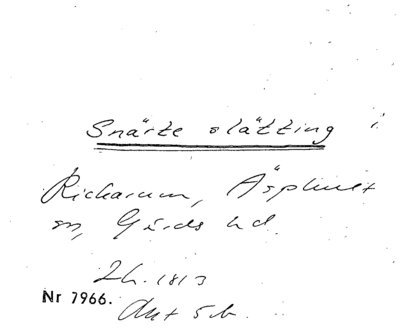 Snärte slätting i
Rickarum, Äsphult
sn, Gärds hd.
2h. 1813
Nr 7966.
Akt 5b.